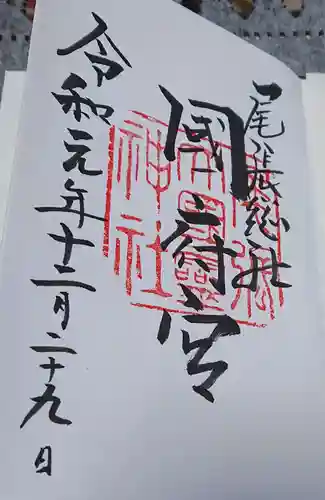 尾張総社
國府宮
令和元年十二月二十九日